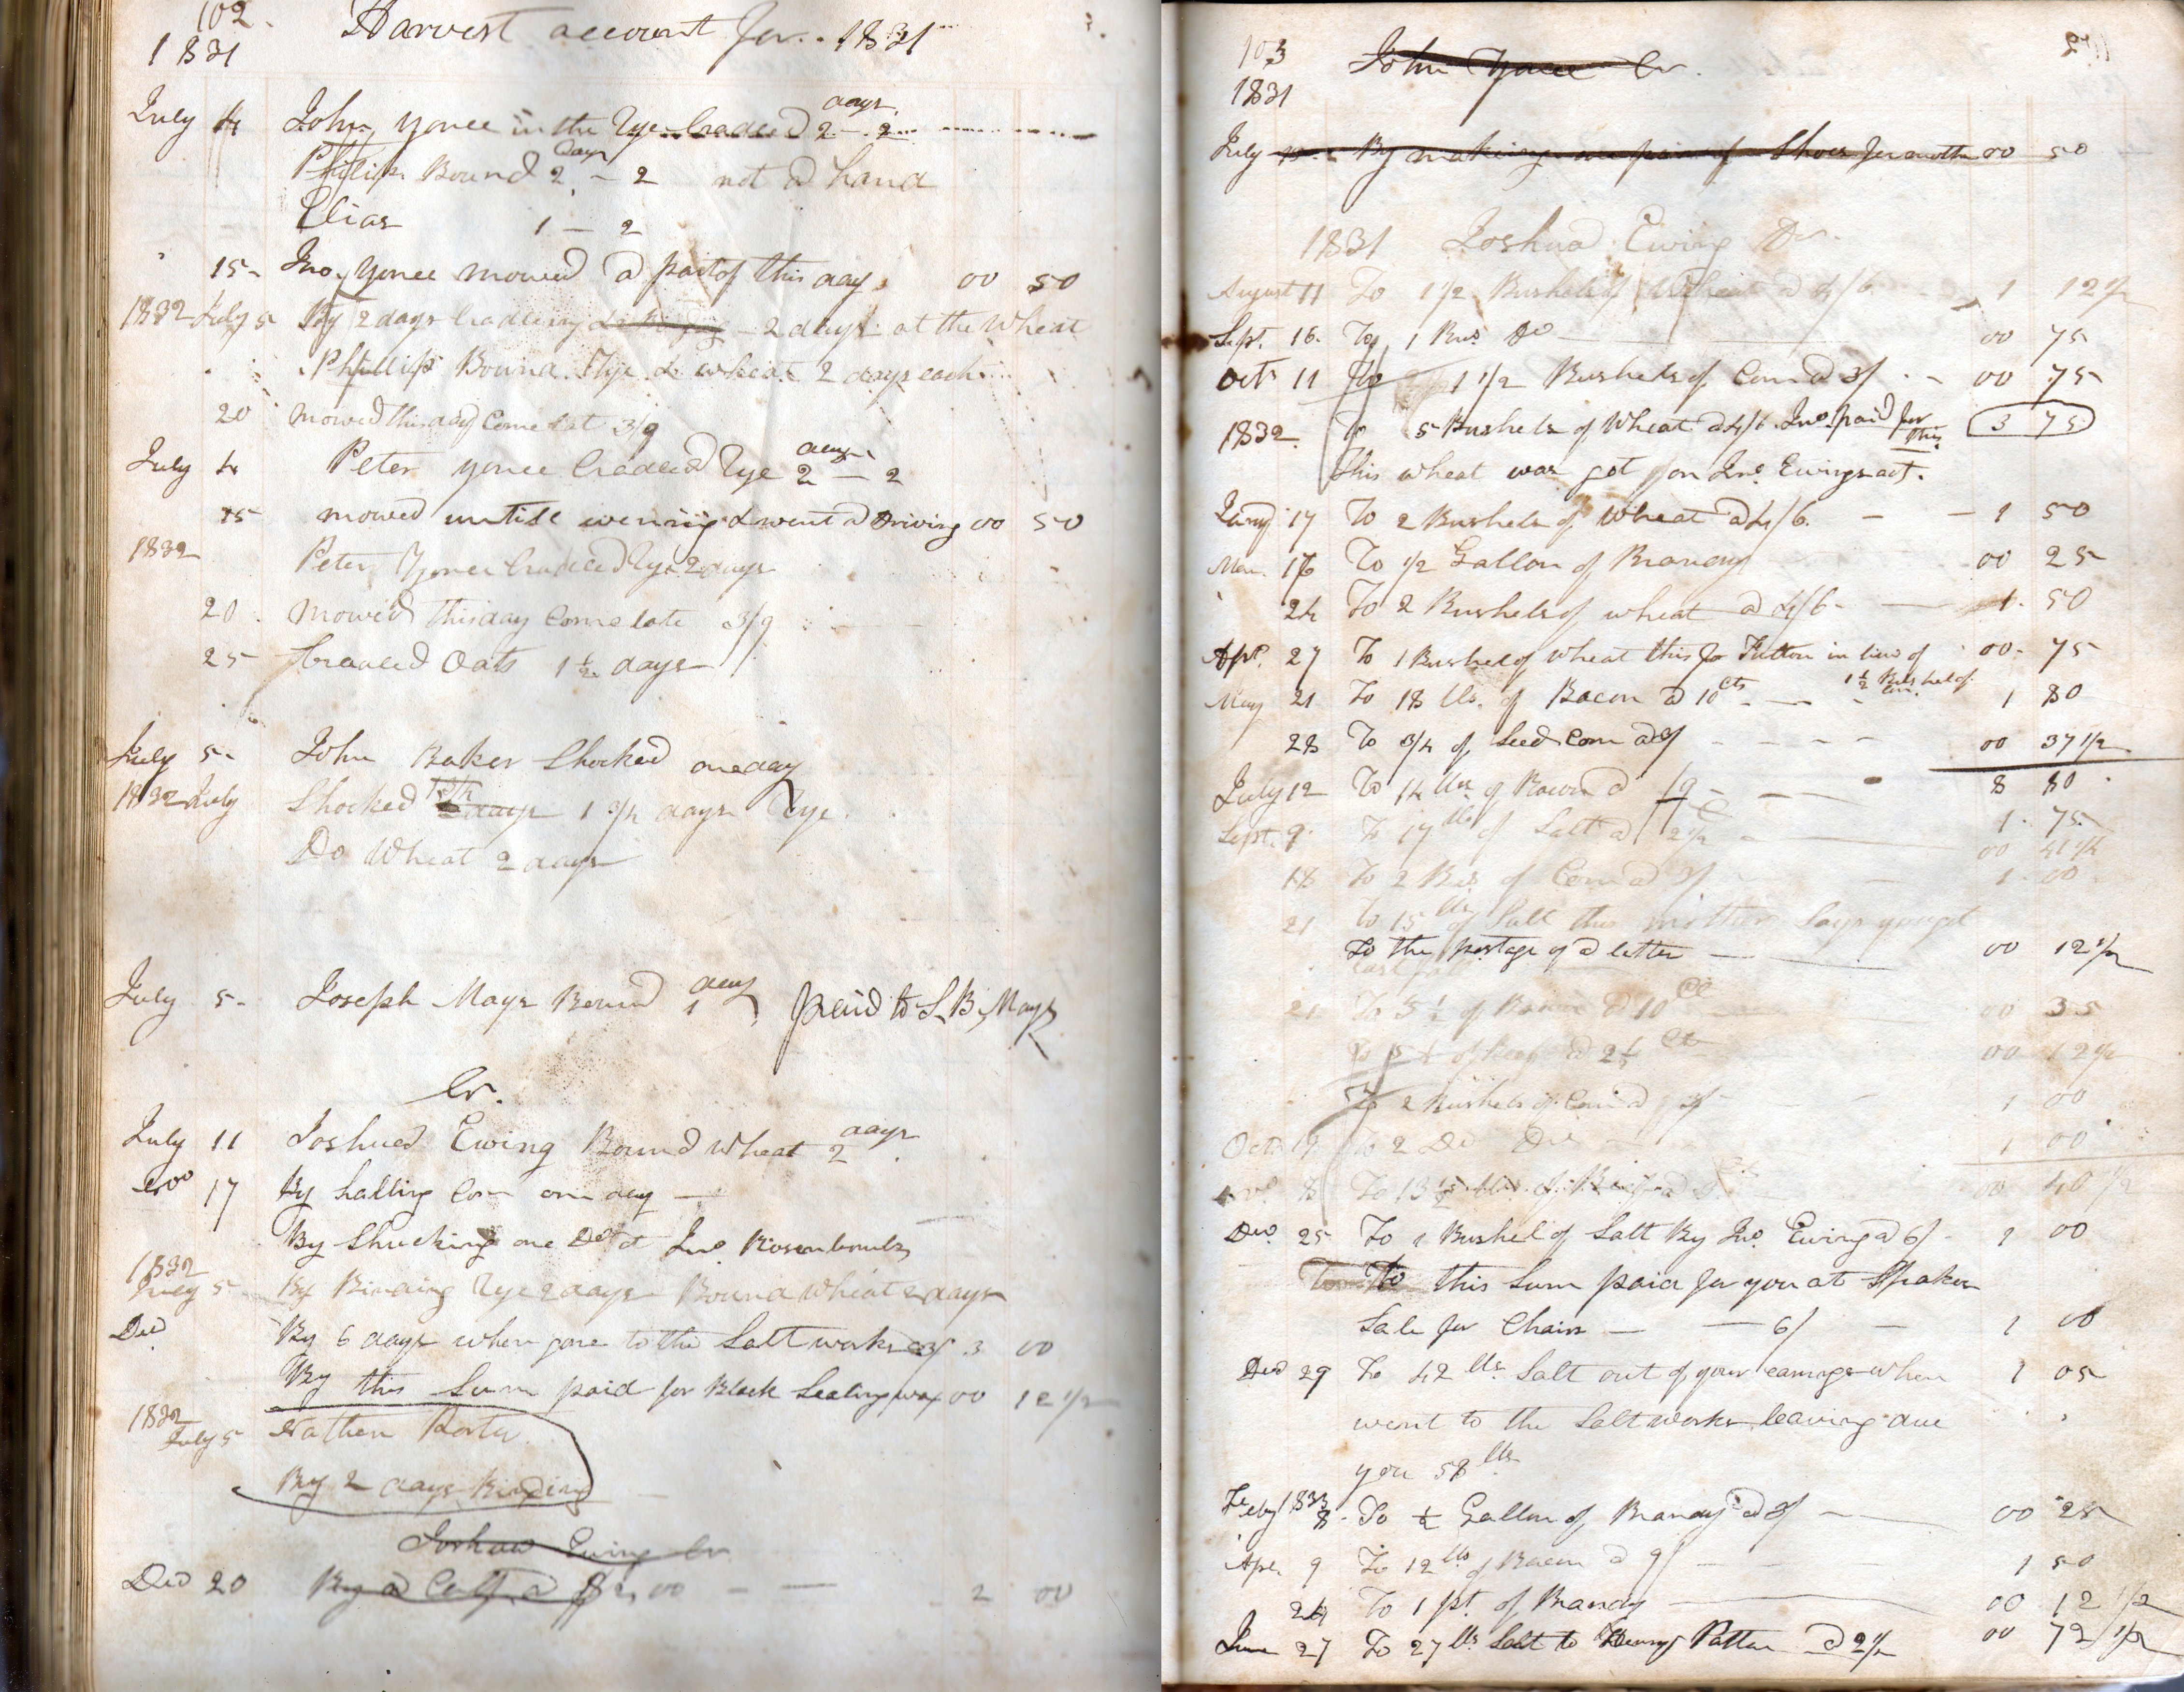 102
1831
Harvest account for 1831
July 4 John Yonce in the Rye Cradled 2 days - 2
Philip Bound 2 days - 2 not a hand
Elias 1 - 2
15 Jno. Yonce mowed a part of this day 00 50
1832 July 5 By 2 days Cradleing 2 days at the Wheat
Phillip Bound Rye & wheat 2 days each
20 mowed this day Come lat 3/9
July 4 Peter Yonce Cradled Rye 2 days - 2
15 mowed untill evening & went a Driving 00 50
1832 Peter Yonce Cradled Rye 2 days
20 mowed this day Come late 3/9
25 Cradled Oats 1 1/2 days
July 5 John Baker Shocked one day
1832 July Shocked days 1 3/4 days Rye
Do Wheat 2 days
July 5 Joseph Mays Bound 1 day paid to S. B. Mays
Cr.
July 11 Joshua Ewing Bound Wheat 2 days
17 By halling Corn one day
By Shucking one Do at Jno
1832
July 5 By Binding Rye 2 days Bound Wheat 2 days
Dec By 6 days when gone to the Salt works 3/ 3 00
By this Sum paid for Black Sealing wax 00 12 1/2
1832
July 5 Nathen Porter
By 2 days Binding
Joshua Ewing Cr
Dec 20 By a Calf a $2,00 2 00
103
1831
John Yonce Cr.
July By making one pair of Shoes for mother 00 50
1831 Joshua Ewing Dr.
August 11 To 1 1/2 Bushels of Wheat a 4/6 1 12 1/2
Sept. 16 To 1 Bus Do 00 75
Oct 11 To 1 1/2 Bushels of Corn a 3/ 00 75
1832 To 5 Bushels of Wheat a 4/6 Jno. paid for this 3 75
this wheat was got on Jno. Ewings act.
Jany 17 To 2 Bushels of Wheat a 4/6 1 50
Mar. 16 To 1/2 Gallon of Brandy 00 25
24 To 2 Bushels of wheat a 4/6 1 50
Apr. 27 To 1 Bushel of Wheat this for in lieu of 1 1/2 Bushel of Corn. 00 75
May 21 To 18 lbs. of Bacon a 10 cts 1 80
28 To 3/4 of Seed Corn a 3/ 00 37 1/2
8 80
July 12 To 14 lbs of Bacon a /9 1 75
Sept. 9 To 17 lbs of Salt a 2 1/2 00 41 1/2
18 To 2 Bus of Corn a 3/ 1 00
21 To 15 lbs of Salt this mother Says you got
last fall
To the postage of a letter 00 12 1/2
21 To 3 1/2 of Bacon a 10 Cts 00 35
To 5 of Beef a 2 1/2 Cts 00 12 1/2
To 2 Bushels of Corn a 3/ 1 00
Oct 19 To 2 Do Do 1 00
8 To 13 1/2 lbs. of Beef a 3 00 40 1/2
Dec. 25 To 1 Bushel of Salt By Jno. Ewing a 6/ 1 00
To this Sum paid for you at
Sale for Chain 6/ 1 00
Dec 29 To 42 lbs Salt out of your earnings when 1 05
went to the Salt works leaving due
you 58 lbs
Feby 1833
8 To 1/2 Gallon of Brandy a 3/ 00 25
Apr. 9 To 12 lbs of Bacon a 9/ 1 50
24 To 1 pt. of Brandy 00 12 1/2
June 27 To 27 lbs Salt to Henry Patton a 2 1/2 00 72 1/2